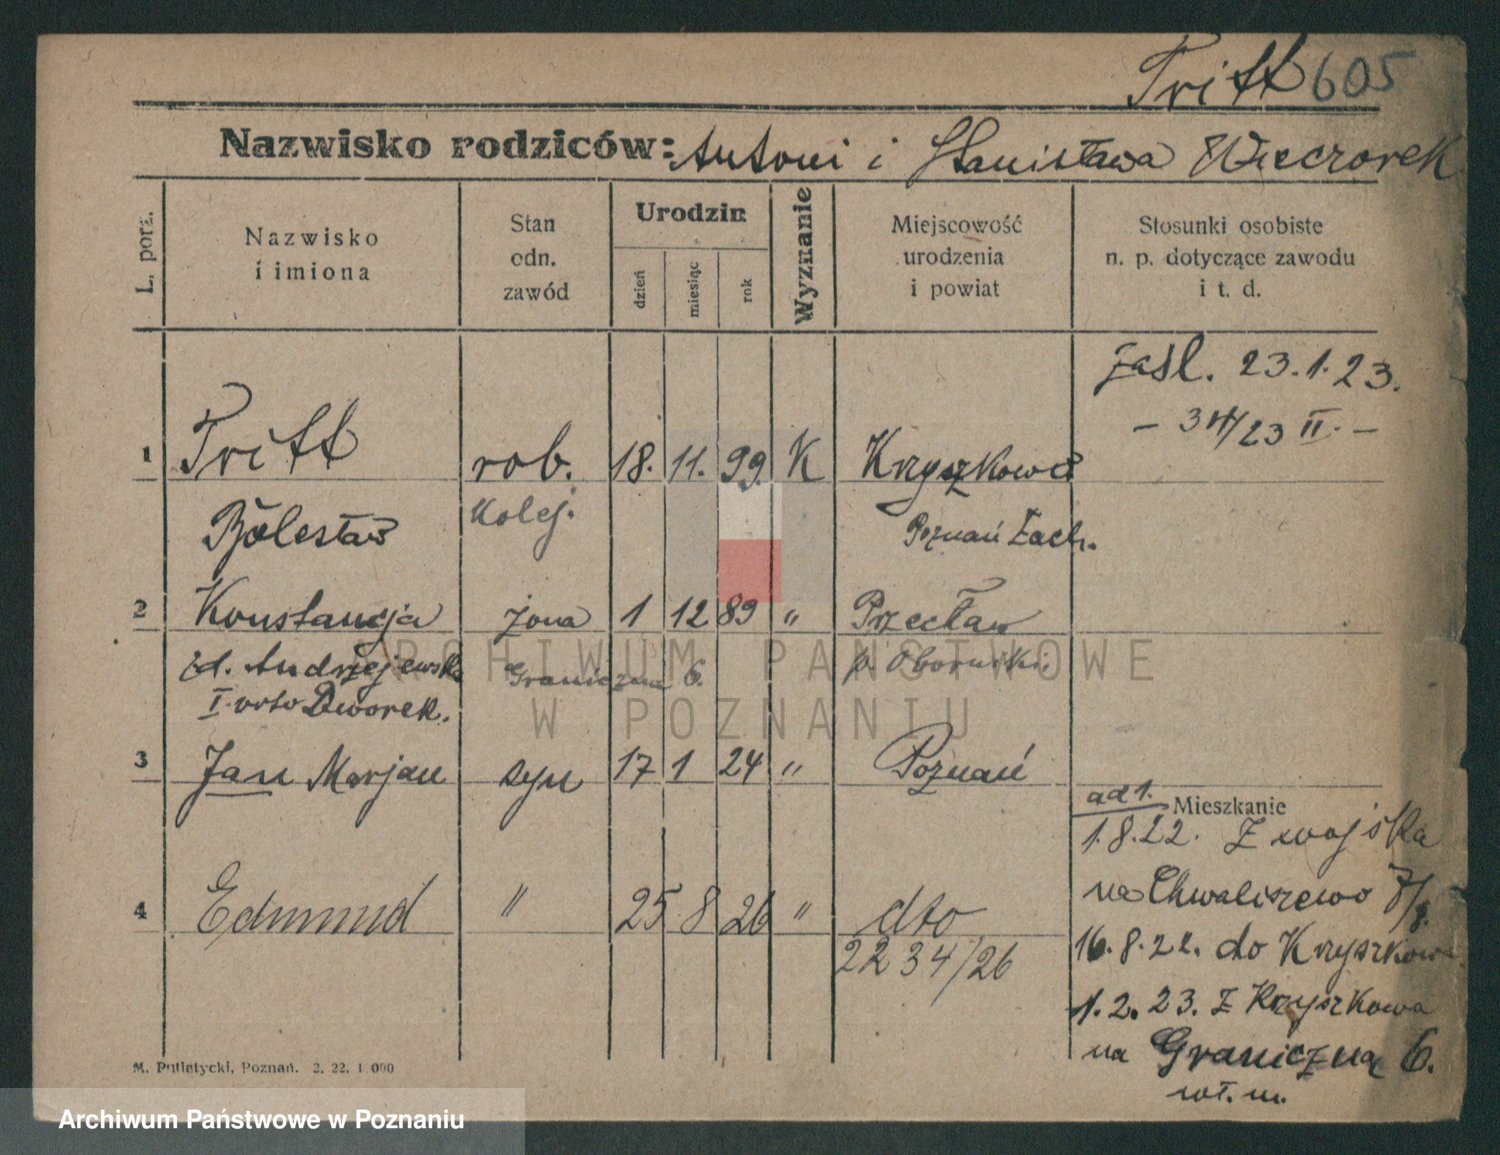 Tritt 605
Nazwisko rodziców: Antoni i Stanisława Wieczorek
L. porz.
Nazwisko
i imiona
Stan
odn.
zawód
Urodzin
dzień
miesiąc
rok
Wyznanie
Miejscowość
urodzenia
i powiat
Stosunki osobiste
n. p. dotyczące zawodu
i t. d.
zasl. 23.1.23.
23 II. -
1 Tritt rob. 18. 11. 99. K Krzyszkowo
Bolesław kolej. Poznań Zach.
2 Konstancja żona 1 12 89 " Przecław
Andrzejewska Graniczna 6. p. Obornski.
I. voto Dworek.
3 Jan Marjan syn 17 1 24 " Poznań
4 Edmund " 25 8 26 " dto
2234/26
ad 1. Mieszkanie
1.8.22. Z wojska
na Chwaliszewo
16.8.22. do Krzyszkowa
1.2.23. Z Krzyszkowa
na Graniczną 6.
M. Putiatycki, Poznań. 2. 22. 1 000
ARCHIWUM PAŃSTWOWE
W POZNANIU
Archiwum Państwowe w Poznaniu